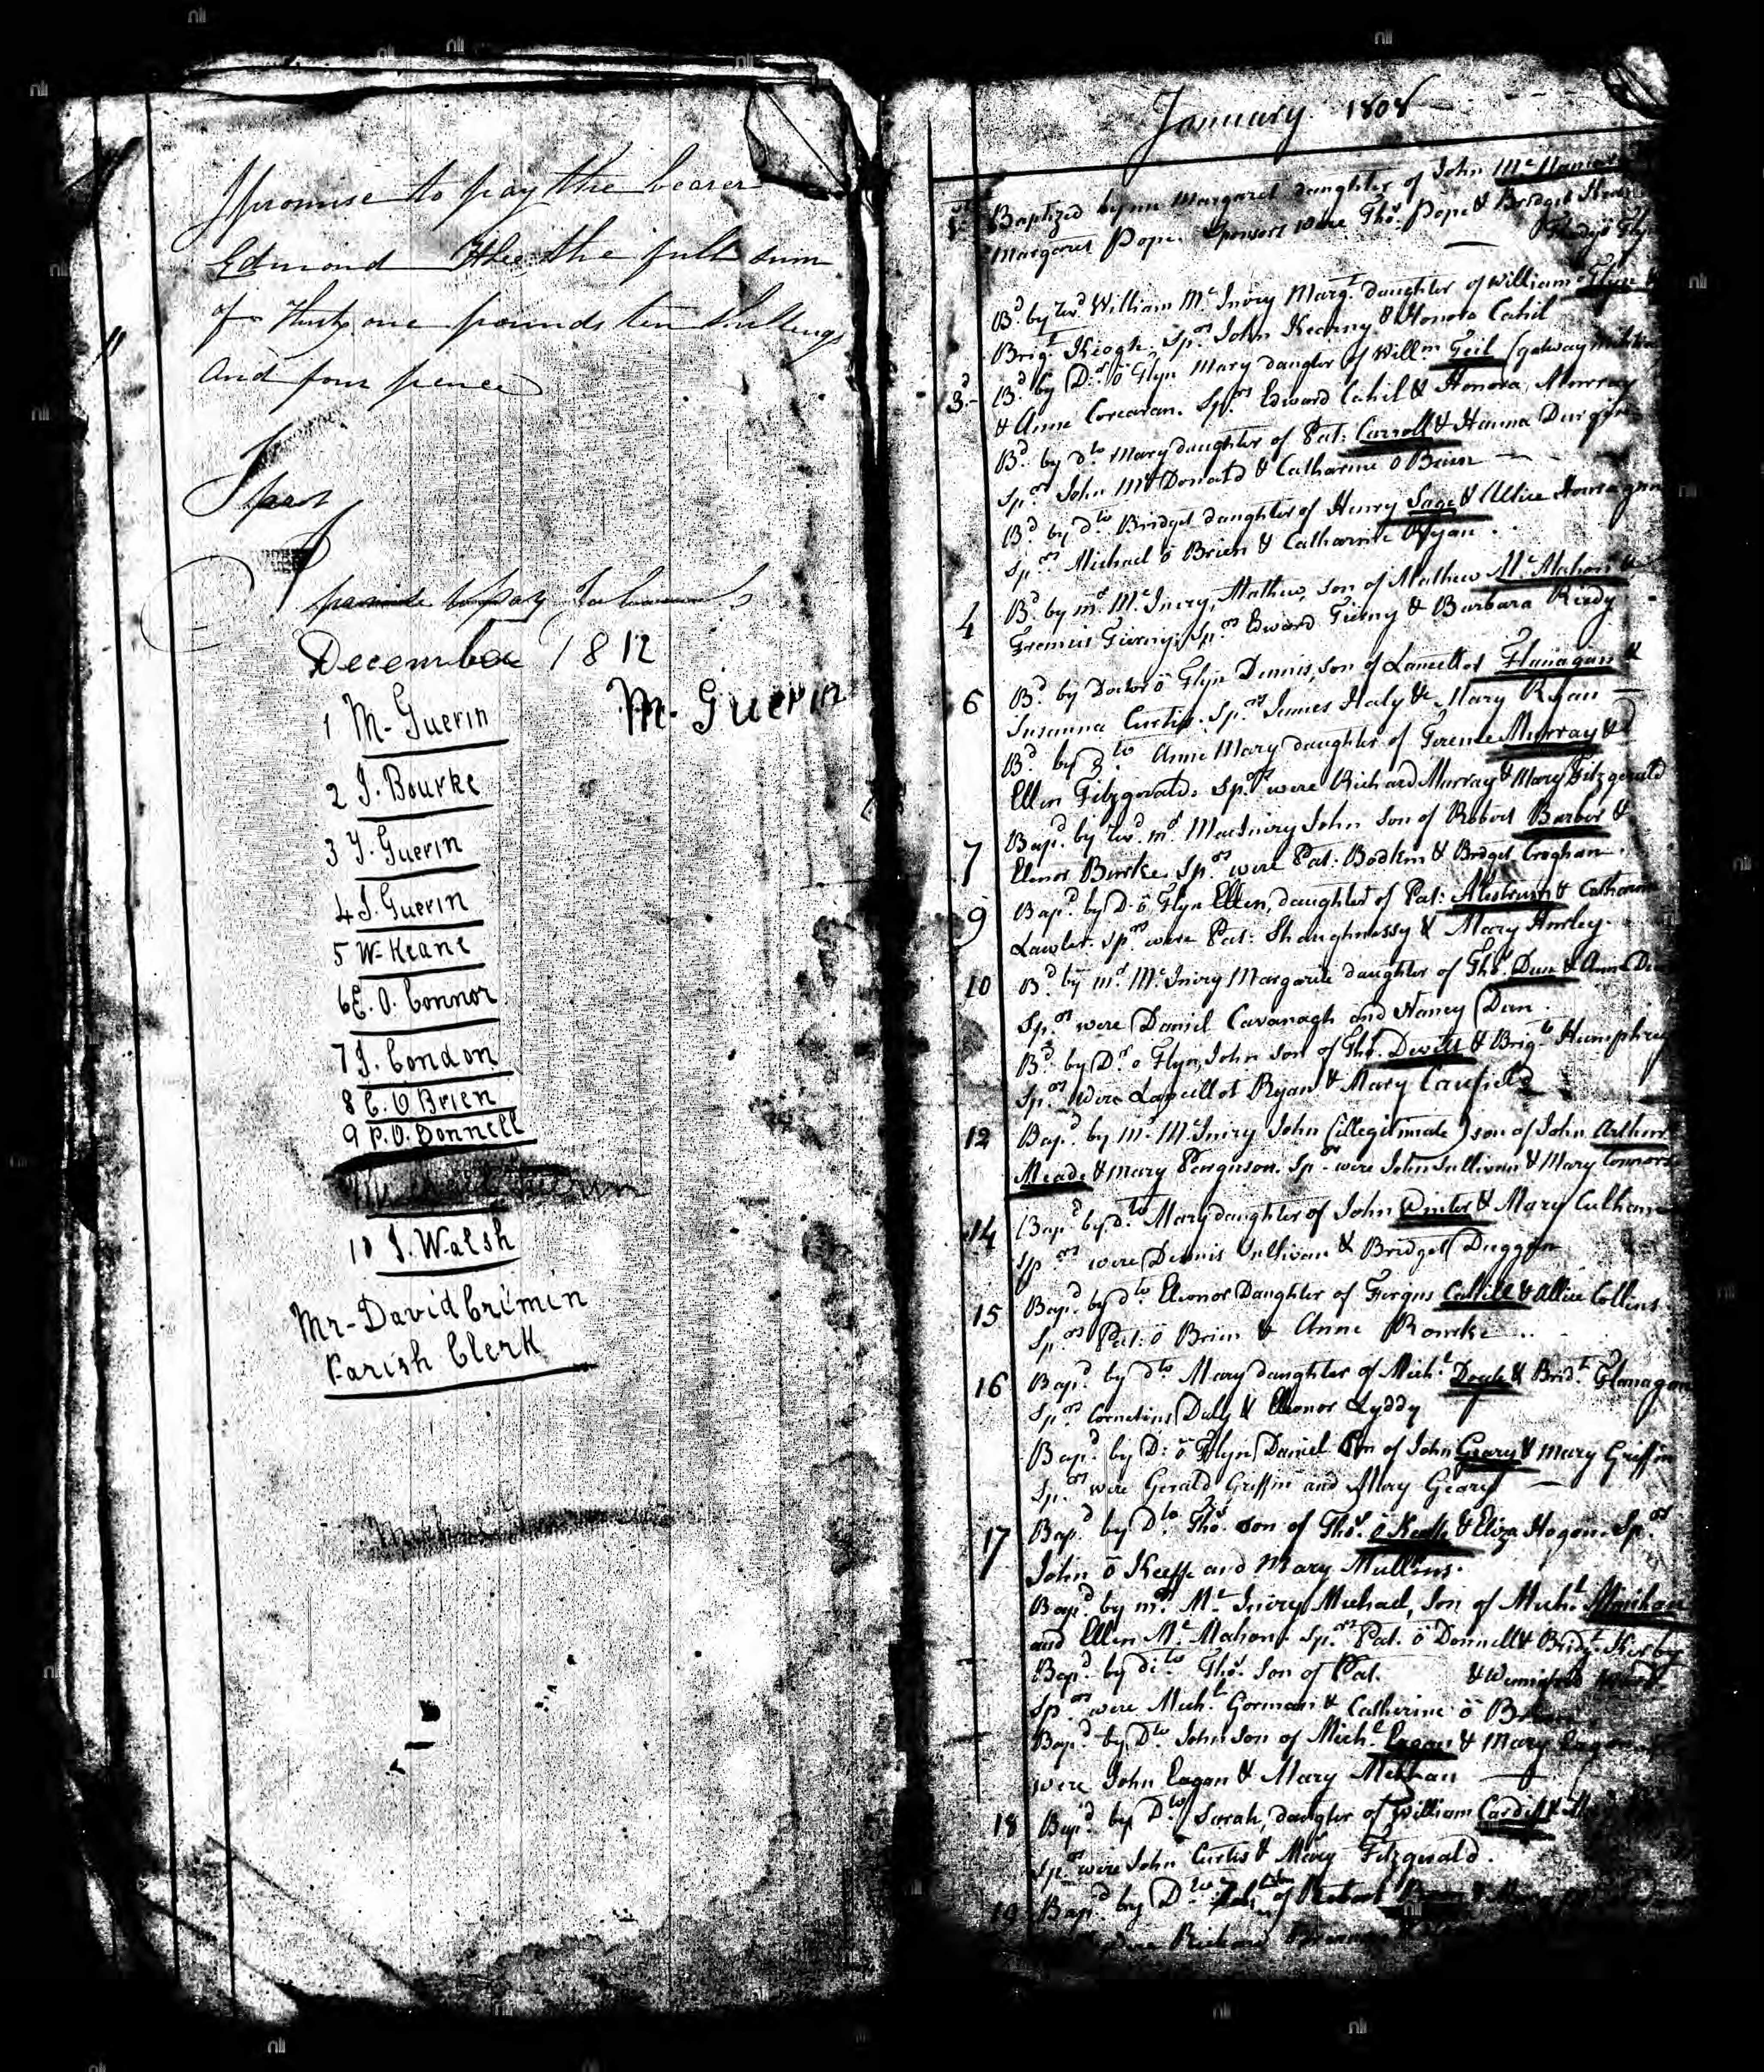 I promise to pay the bearer
Edmond the full sum
of Thirty one pounds ten shillings
and four pence
I
promise to pay
December 1812
1 M. Guerin M. Guerin
2 J. Bourke
3 J. Guerin
4 J. Guerin
5 W. Keane
6 E. O. Connor
7 J. Condon
8 C. O Brien
9 P. O. Donnell
10 J. Walsh
Mr. David Crimin
Parish Clerk
January 1808
1st Baptized by me Margaret daughter of John
Margaret Pope. Sponsors were Thos. Pope & Bridget
Bd. by Revd. William Mc Iniry Margt. daughter of William Flyn &
Brigt. Kiogh. Sprs. John Kearny & Honora Cahil
3d. Bd. by Dr. ō Flyn Mary daugter of Willm. Geil (galway militia
& Anne Corcaran. Sprs. Edward Cahil & Honora Murray
Bd. by dto Mary daughter of Pat: Carroll & Hanna
Sprs John McDonald & Catharine ō Brien
Bd. by dto Bridget daughter of Henry Sage & Allice
Sprs. Michael ō Brien & Catharine Ryan.
4 Bd. by mr. Mc. Iniry, Mathew, son of Mathew Mc. Mahon &
Sprs Edward & Barbara
6 Bd. by Doctor ō Flyn Dennis, son of Lancellot Flanagan &
Susanna Curtis. Sprs. James Haly & Mary Ryan
Bd. by Dto Anne Mary daughter of Terence Murray &
Ellen Fitzgerald. Sprs. were Richard Murray & Mary Fitzgerald
7 Bapd. by Revd. mr. MacIniry John son of Robert Barber &
Elenor Burke. Sprs. were Pat: Bodkin & Bridget Croghan.
9 Bapd. by D. ō Flyn Ellen, daughter of Pat: & Catharine
Lawler. Sprs were Pat: Shaughnessy & Mary Hurley.
10 Bd. by mr. Mc. Iniry Margarite daughter of Thos. Dun & Anne
Sprs were Daniel Cavanagh and Nancy Dun.
Bd. by Dr. o Flyn, John son of Thos. Devitt & Brigt. Humphrey
Sprs were Lancellot Ryan & Mary Caufield
12 Bapd. by mr Mc.Iniry John (illegitimate) son of John Arthur
Meade & Mary Ferguson. Sprs were John Sullivan & Mary Connors
14 Bapd by dto Mary daughter of John Winter & Mary Culhane
Sprs were Dennis Sullivan & Bridget Duggan
15 Bapd. by dto Elenor Daughter of Fergus Cahill & Allice Collins.
Sprs Pat. ō Brien & Anne Rourke
16 Bapd. by dto Mary daughter of Michl. Doyle & Bridt. Flanagan
Sprs. Cornelius Daly & Elenor Lyddy
Bapd. by D: ō Flyn Daniel Son of John Geary & Mary Griffin
Sprs were Gerald Griffin and Mary Geary
17 Bapd by Dto Thos. son of Thos. ō Keeffe & Eliza Hogan. Sprs
John ō Keeffe and Mary Mullins.
Bapd. by mr. Mc. Iniry Michael, Son of Michl. Minihan
and Ellen Mc. Mahon. Sprs Pat. ō Donnell & Bridgt. Kirby
Bapd. by dito Thos. Son of Pat. & Winnifred
Sprs were Michl. Gorman & Catherine ō
Bapd. by Dto John son of Michl. Eagan & Mary
were John Eagan & Mary
18 Bapd by Dto Sarah, daugter of William Cardiff &
Sprs were John Curtis & Mary Fitzgerald.
19 Bapd. by Dto of Robert
were Richard